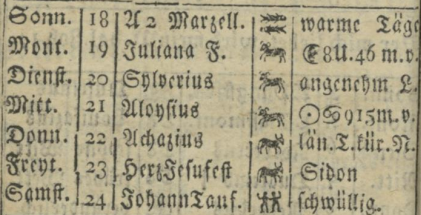 Sonn. 18 A 2 Marzell. warme Täge
Mont. 19 Juliana F. 8U.46 m.v.
Dienst. 20 Sylverius angenehm L.
Mitt. 21 Aloysius ☉♋915m.v.
Donn. 22 Achazius län.T.kür.N.
Freyt. 23 HerzJesufest Sidon
Samst. 24 JohannTauf. schwüllig.